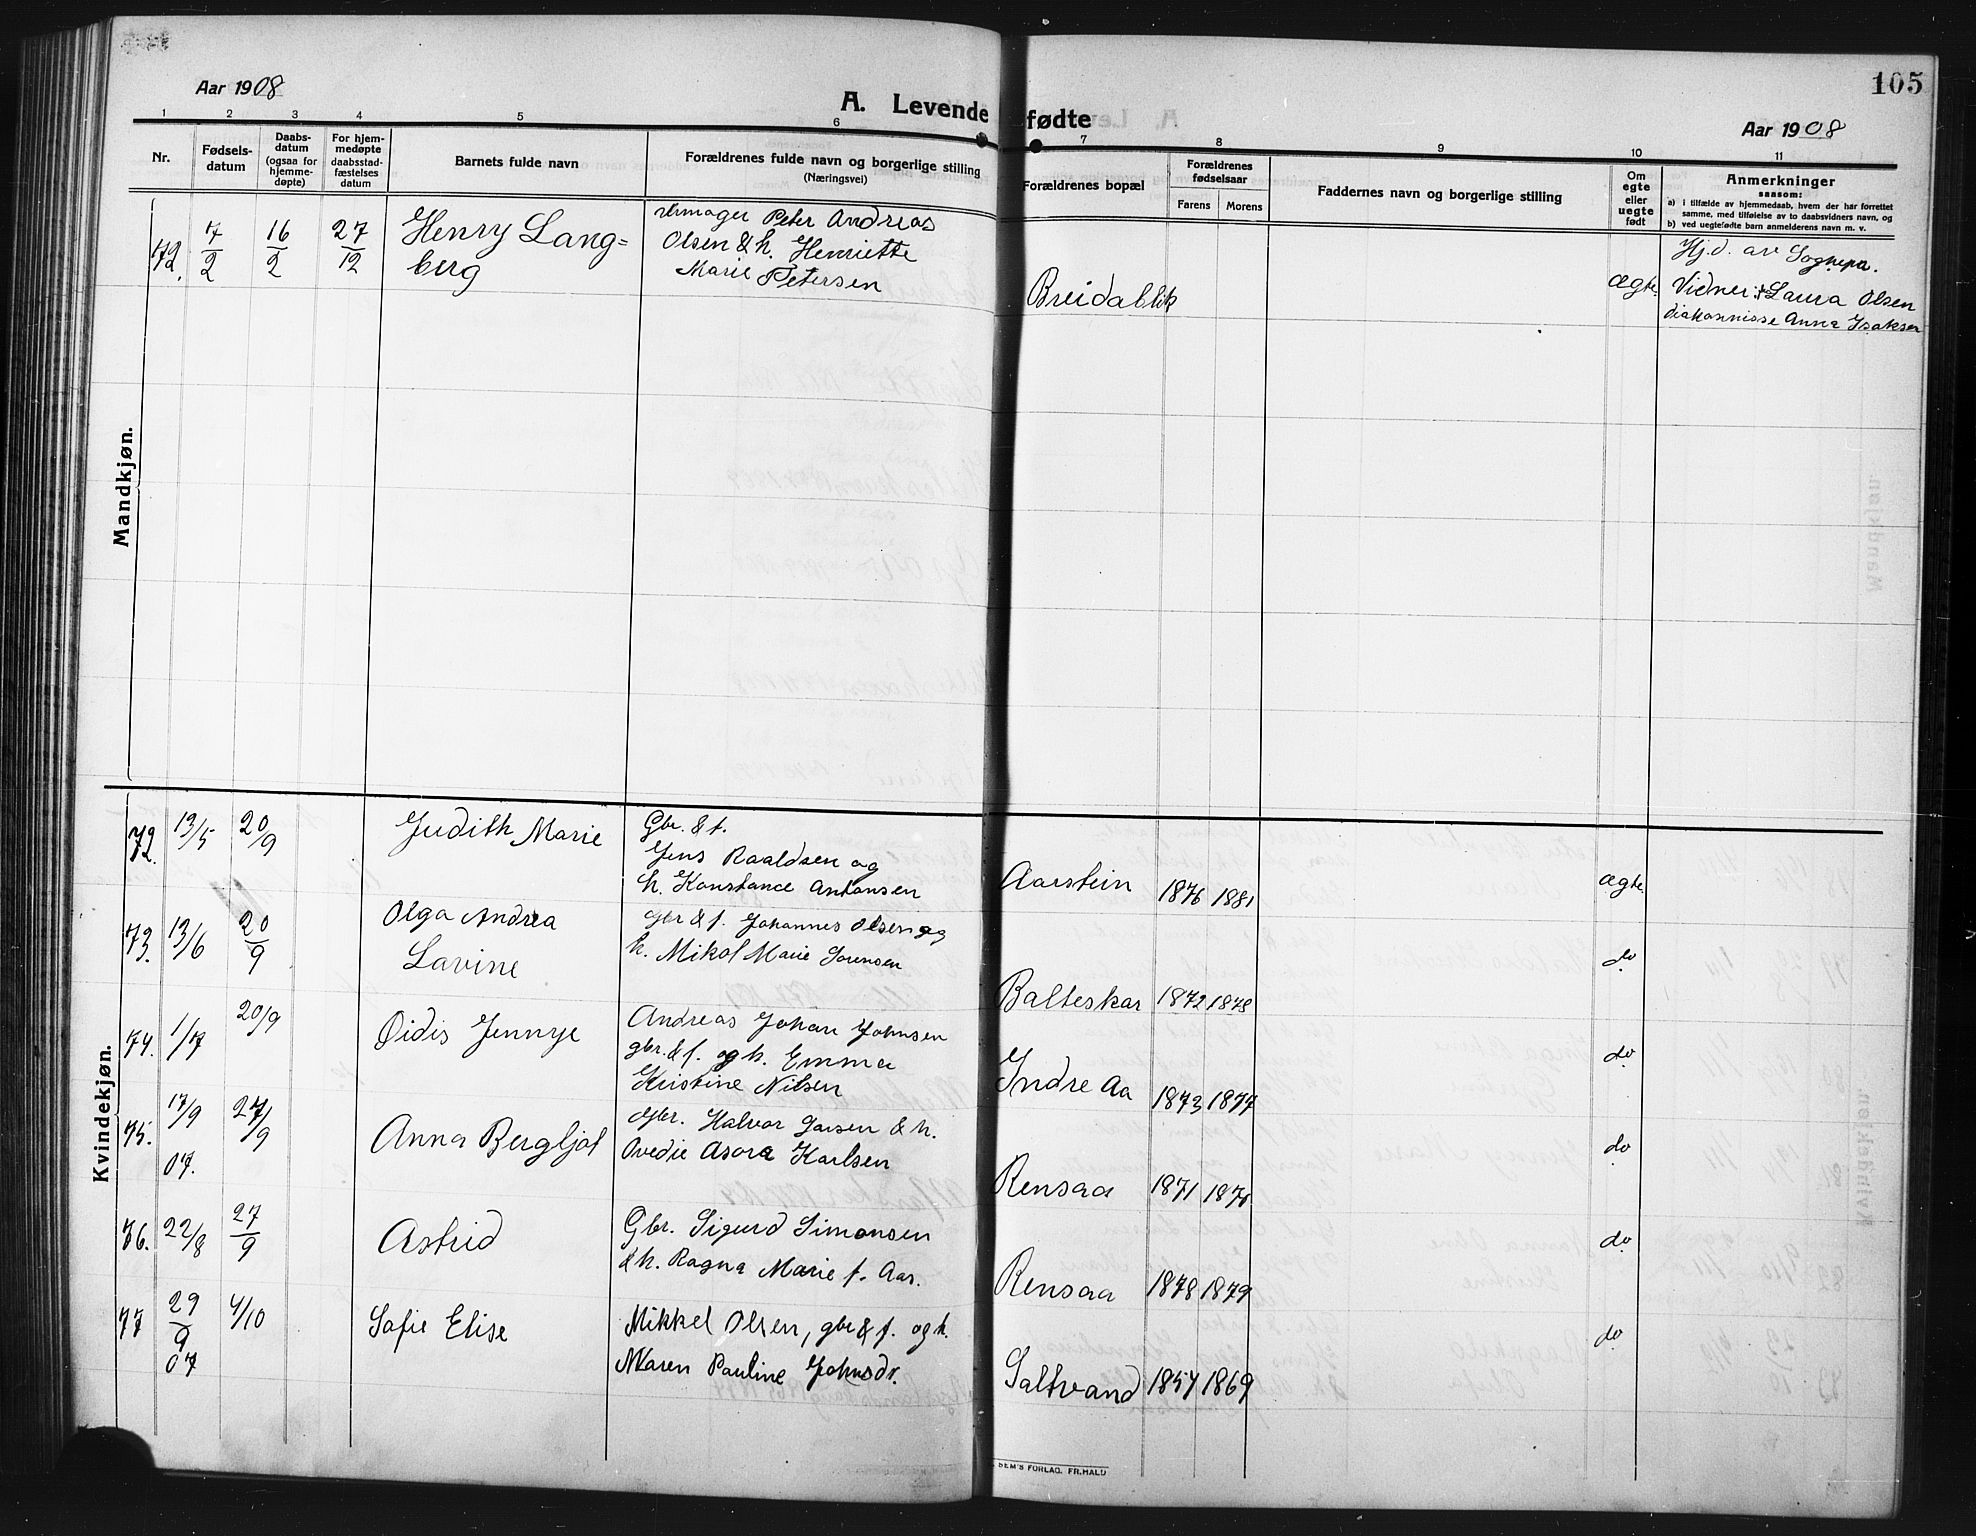 105
Aar 1908
A. Levende fødte
Aar 1908
1 2 3 4 5 6 7 8 9 10 11
Nr.
Fødsels-
datum
Daabs-
datum
(ogsaa for
hjemme-
døpte)
For hjem-
medøpte
daabsstad-
fæstelses
datum
Barnets fulde navn
Forældrenes fulde navn og borgerlige stilling
(Næringsvei)
Forældrenes bopæl
Forældrenes
fødselsaar
Farens Morens
Faddernes navn og borgerlige stilling
Om
egte
eller
uegte
født
Anmerkninger
saasom:
a) i tilfælde av hjemmedaab, hvem der har forrettet
samme, med tilføielse av to daabsvidners navn, og
b) ved uegtefødte barn anmelderens navn m. v.
Mandkjøn.
72. 7/2 16/2 27/12
Henry Lang=
berg
Urmager Peter Andreas
Olsen & h. Henriette
Marie Petersen
Breidablik
Ægte.
Hj.d. av Sognepr.
Vidner: Laura Olsen
diakonnisse Anna Isaksen
Kvindekjøn.
72. 13/5 20/9
Judith Marie
Gbr. & f.
Jens Roaldsen og
h. Konstance Antonsen
Aarstein 1876 1881
Ægte.
73. 13/6 20/9
Olga Andrea
Lavine
Gbr & f. Johannes Olsen og
h. Mikol Marie Sorensen
Balteskar 1872 1878
do
74. 1/7 20/9
Øidis Jennye
Andreas Johan Johnsen
gbr. & f. og h. Emma
Kristine Nilsen
Indre Aa 1873 1877
do
75. 17/9 07. 27/9
Anna Bergljot
Gbr. Halvor Larsen & h.
Ovedie Asora Karlsen
Rensaa 1871 1870
do
76. 22/8 27/9
Astrid
Gbr. Sigurd Simonsen
& h. Ragna Marie f. Aar.
Rensaa 1878 1879
do
77 29/9 07 4/10
Sofie Elise
Mikkel Olsen, gbr & f. og h.
Maren Pauline Johnsdr.
Saltvand 1857 1869
do
SEM'S FORLAG. FR.HALD